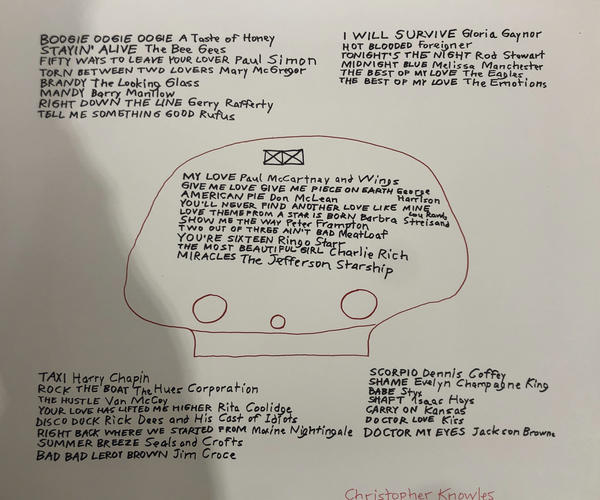 BOOGIE OOGIE OOGIE A Taste of Honey
STAYIN' ALIVE The Bee Gees
FIFTY WAYS TO LEAVE YOUR LOVER Paul Simon
TORN BETWEEN TWO LOVERS Mary McGregor
BRANDY The Looking Glass
MANDY Barry Manilow
RIGHT DOWN THE LINE Gerry Rafferty
TELL ME SOMETHING GOOD Rufus
I WILL SURVIVE Gloria Gaynor
HOT BLOODED Foreigner
TONIGHT'S THE NIGHT Rod Stewart
MIDNIGHT BLUE Melissa Manchester
THE BEST OF MY LOVE The Eagles
THE BEST OF MY LOVE The Emotions
MY LOVE Paul McCartney and Wings
GIVE ME LOVE GIVE ME PIECE ON EARTH George Harrison
AMERICAN PIE Don McLean
YOU'LL NEVER FIND ANOTHER LOVE LIKE MINE Lou Rawls
LOVE THEME FROM A STAR IS BORN Barbra Streisand
SHOW ME THE WAY Peter Frampton
TWO OUT OF THREE AIN'T BAD MeatLoaf
YOU'RE SIXTEEN Ringo Starr
THE MOST BEAUTIFUL GIRL Charlie Rich
MIRACLES The Jefferson Starship
TAXI Harry Chapin
ROCK THE BOAT The Hues Corporation
THE HUSTLE Van McCoy
YOUR LOVE HAS LIFTED ME HIGHER Rita Coolidge
DISCO DUCK Rick Dees and His Cast of Idiots
RIGHT BACK WHERE WE STARTED FROM Maxine Nightingale
SUMMER BREEZE Seals and Crofts
BAD BAD LEROY BROWN Jim Croce
SCORPIO Dennis Coffey
SHAME Evelyn Champagne King
BABE Styx
SHAFT Isaac Hays
CARRY ON Kansas
DOCTOR LOVE Kiss
DOCTOR MY EYES Jackson Browne
Christopher Knowles